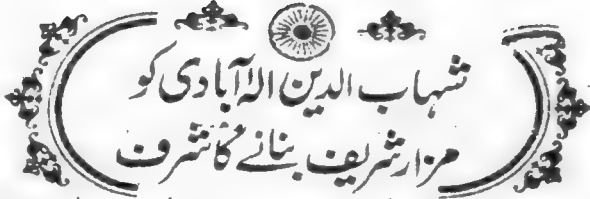 شہاب الدین الہٰ آبادی کو
مزار شریف بنانے کا شرف